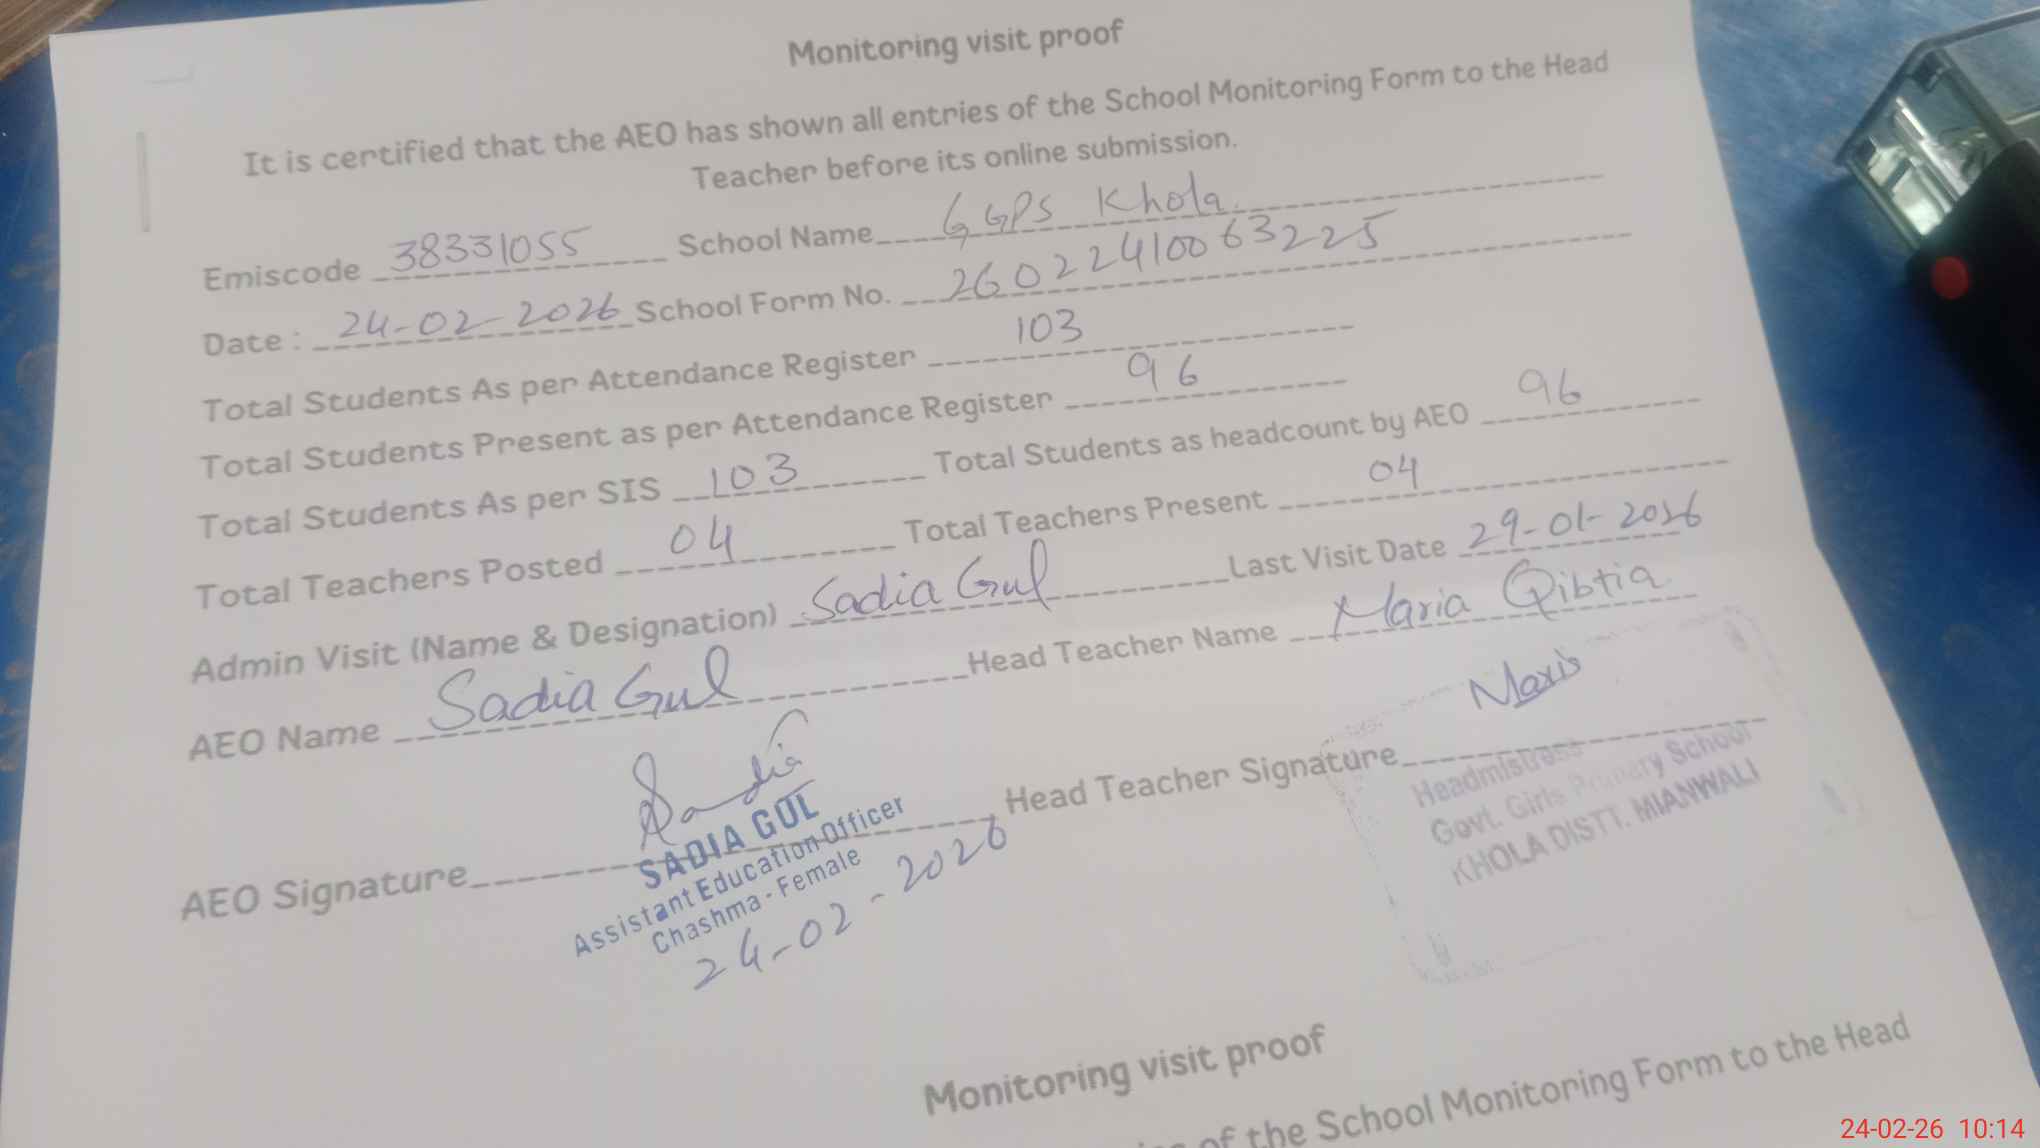 Monitoring visit proof
It is certified that the AEO has shown all entries of the School Monitoring Form to the Head
Teacher before its online submission.
Emiscode 38331055 School Name GGPS Khola
Date : 24-02-2026 School Form No. 26022410063225
Total Students As per Attendance Register 103
Total Students Present as per Attendance Register 96
Total Students As per SIS 103 Total Students as headcount by AEO 96
Total Teachers Posted 04 Total Teachers Present 04
Admin Visit (Name & Designation) Sadia Gul Last Visit Date 29-01-2026
AEO Name Sadia Gul Head Teacher Name Maria Qibtia
AEO Signature Sadia Head Teacher Signature
SADIA GUL
Assistant Education Officer
Chashma - Female
24-02-2026
Headmistress
Govt. Girls Primary School
KHOLA DISTT. MIANWALI
Monitoring visit proof
of the School Monitoring Form to the Head
24-02-26 10:14